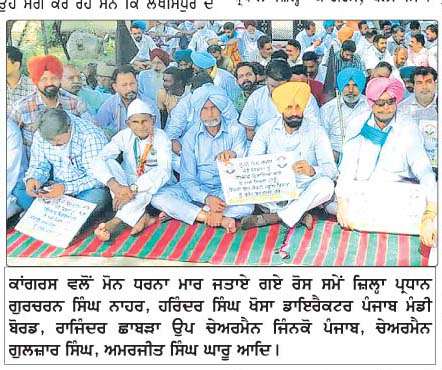 ਤੁਰ ਮੰਗ ਕਰ ਰਹੇ ਸਨ ਕਿ ਲਖੀਮਪੁਰ ਦੇ
ਕਾਂਗਰਸ ਵਲੋਂ ਮੋਨ ਧਰਨਾ ਮਾਰ ਜਤਾਏ ਗਏ ਰੋਸ ਸਮੇਂ ਜ਼ਿਲ੍ਹਾ ਪ੍ਰਧਾਨ
ਗੁਰਚਰਨ ਸਿੰਘ ਨਾਹਰ, ਹਰਿੰਦਰ ਸਿੰਘ ਖੋਸਾ ਡਾਇਰੈਕਟਰ ਪੰਜਾਬ ਮੰਡੀ
ਬੋਰਡ, ਰਾਜਿੰਦਰ ਛਾਬੜਾ ਉਪ ਚੇਅਰਮੈਨ ਜਿੰਨਕੋ ਪੰਜਾਬ, ਚੇਅਰਮੈਨ
ਗੁਲਜ਼ਾਰ ਸਿੰਘ, ਅਮਰਜੀਤ ਸਿੰਘ ਘਾਰੂ ਆਦਿ।